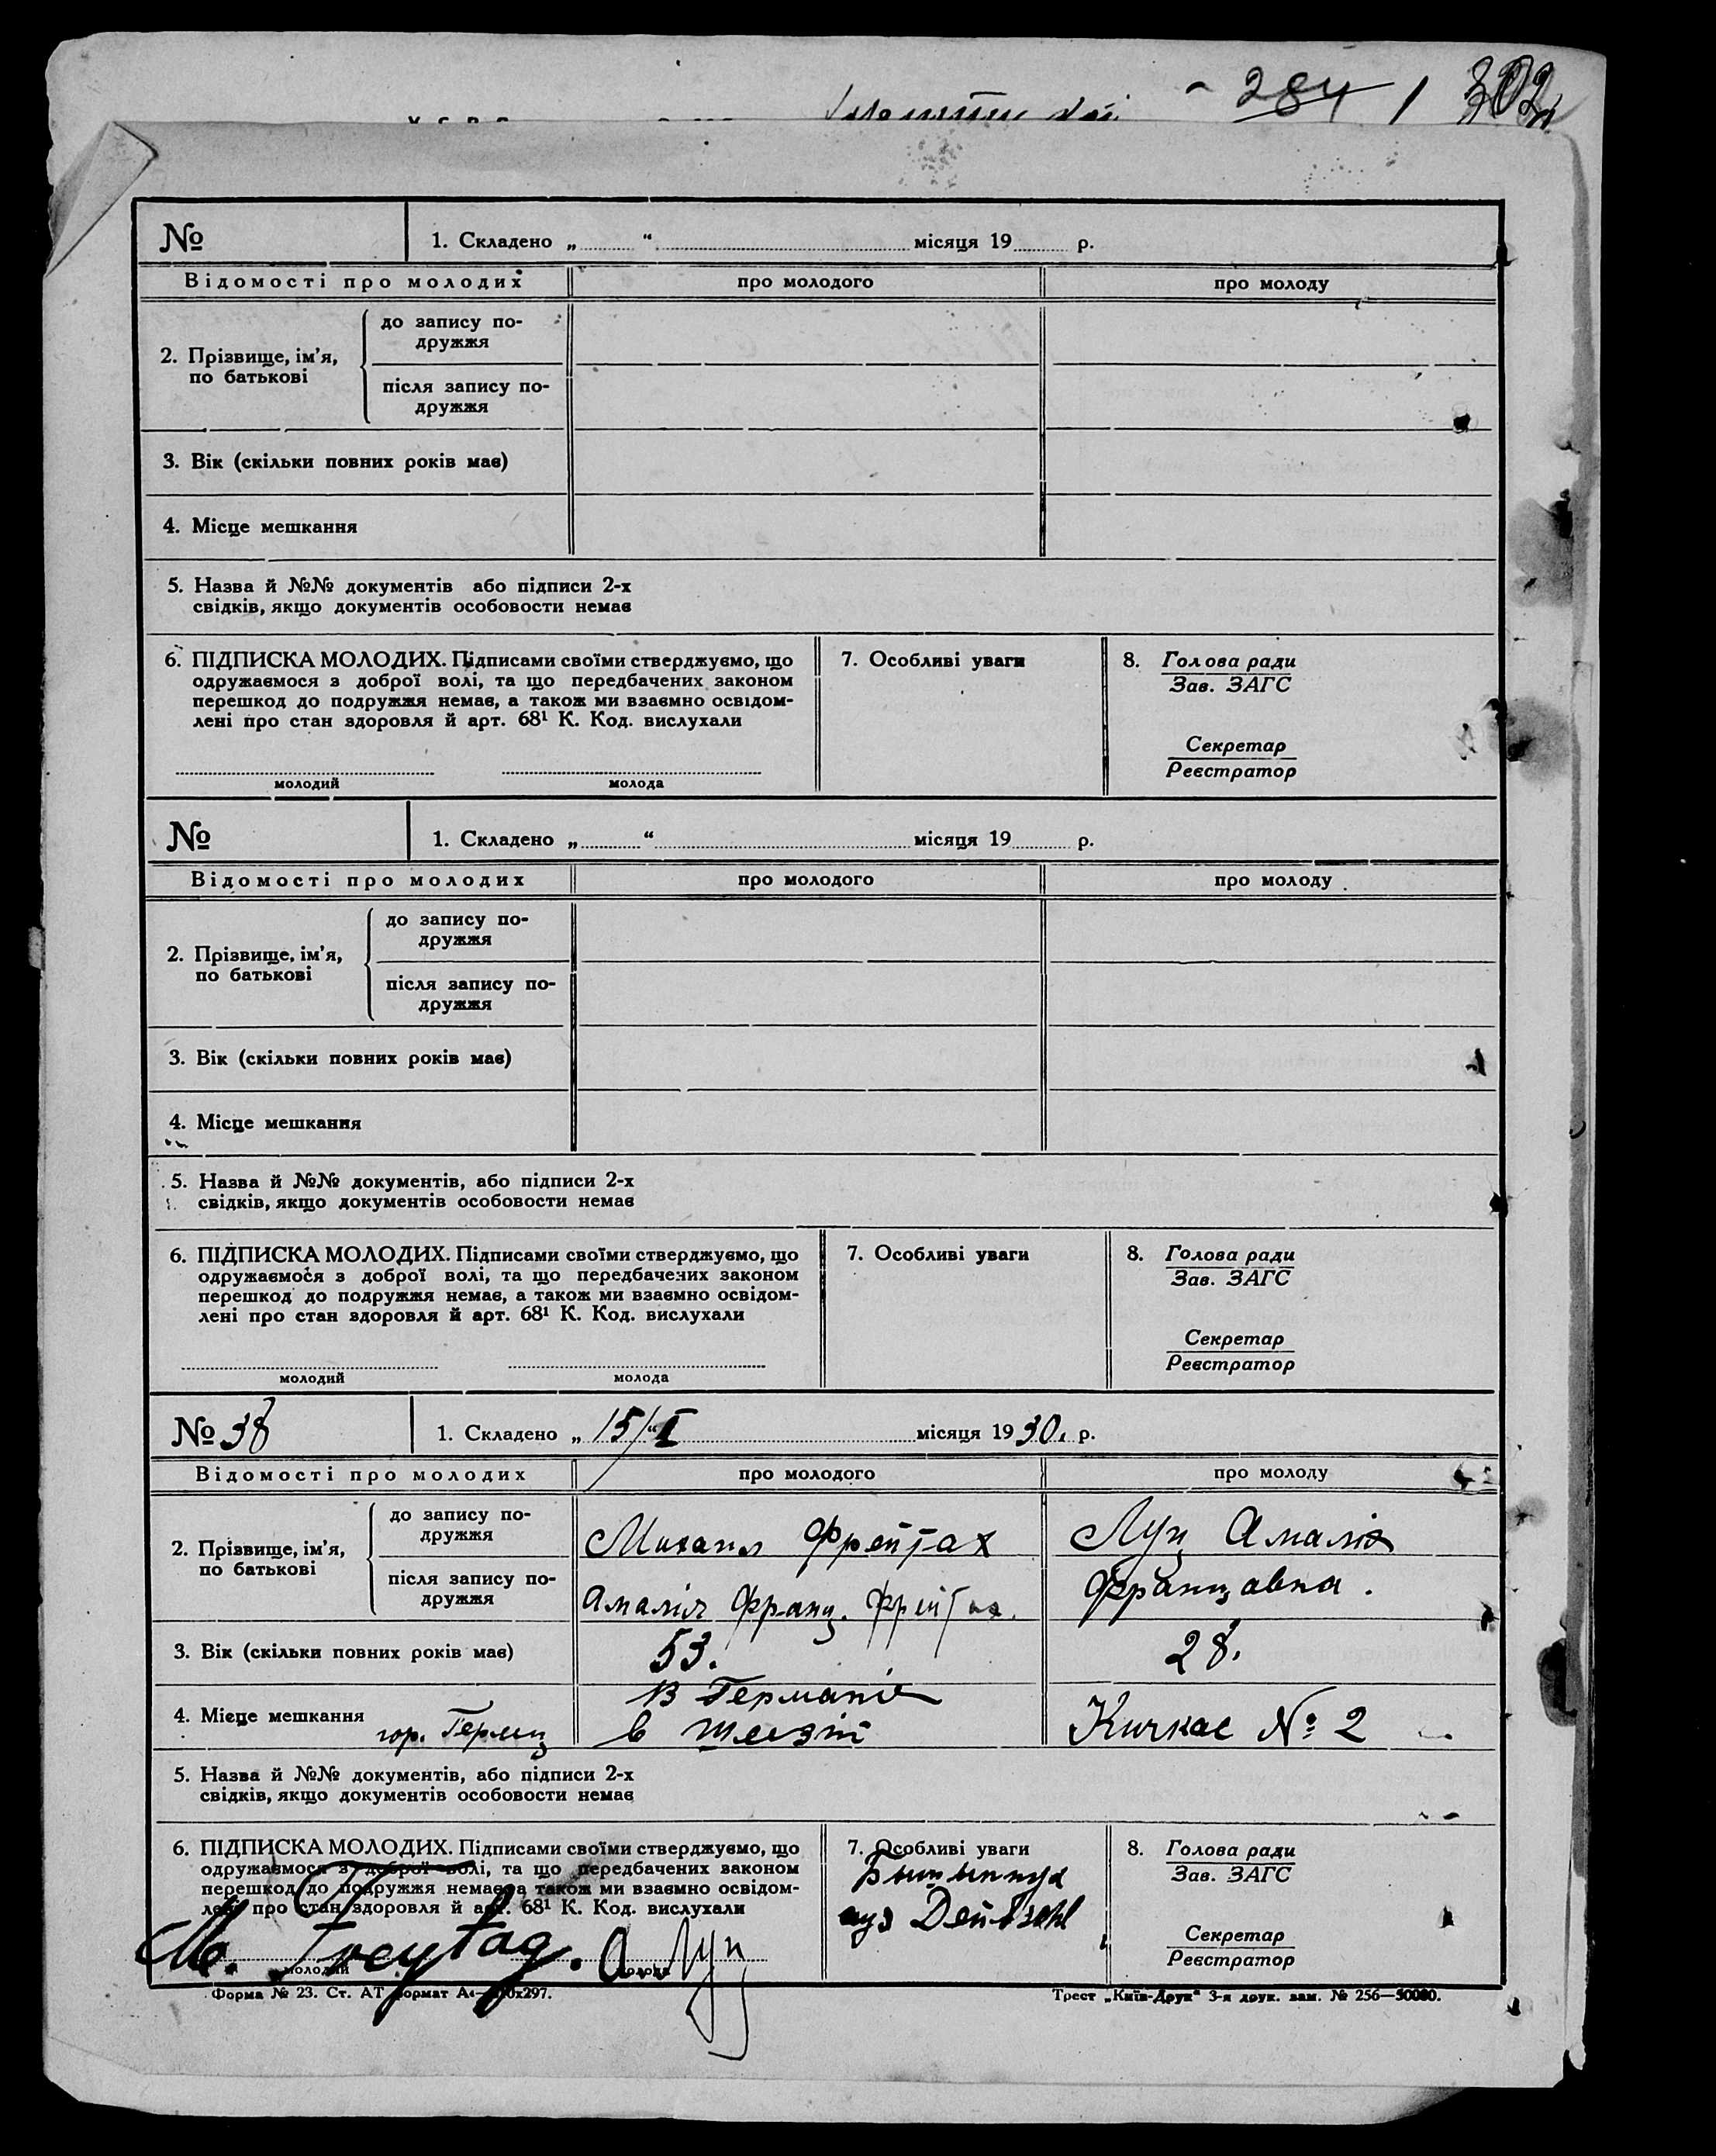 284 / 302
№
1. Складено „ “ місяця 19 р.
Відомості про молодих
про молодого
про молоду
2. Прізвище, ім’я,
по батькові
до запису по-
дружжя
після запису по-
дружжя
3. Вік (скільки повних років має)
4. Місце мешкання
5. Назва й №№ документів або підписи 2-х
свідків, якщо документів особовости немає
6. ПІДПИСКА МОЛОДИХ. Підписами своїми стверджуємо, що
одружаємося з доброї волі, та що передбачених законом
перешкод до подружжя немає, а також ми взаємно освідом-
лені про стан здоровля й арт. 68¹ К. Код. вислухали
молодий
молода
7. Особливі уваги
8. Голова ради
Зав. ЗАГС
Секретар
Реєстратор
№
1. Складено „ “ місяця 19 р.
Відомості про молодих
про молодого
про молоду
2. Прізвище, ім’я,
по батькові
до запису по-
дружжя
після запису по-
дружжя
3. Вік (скільки повних років має)
4. Місце мешкання
5. Назва й №№ документів, або підписи 2-х
свідків, якщо документів особовости немає
6. ПІДПИСКА МОЛОДИХ. Підписами своїми стверджуємо, що
одружаємося з доброї волі, та що передбачених законом
перешкод до подружжя немає, а також ми взаємно освідом-
лені про стан здоровля й арт. 68¹ К. Код. вислухали
молодий
молода
7. Особливі уваги
8. Голова ради
Зав. ЗАГС
Секретар
Реєстратор
№ 38
1. Складено „ 15/“ I місяця 19 30. р.
Відомості про молодих
про молодого
про молоду
2. Прізвище, ім’я,
по батькові
до запису по-
дружжя
Михаил Фрейтах
Луц Амалія
після запису по-
дружжя
Амалія Франц. Фрейтах.
Францовна.
3. Вік (скільки повних років має)
53.
28.
4. Місце мешкання
гор. Герлиц
В Германіе
в
Кичкас № 2
5. Назва й №№ документів, або підписи 2-х
свідків, якщо документів особовости немає
6. ПІДПИСКА МОЛОДИХ. Підписами своїми стверджуємо, що
одружаємося з доброї волі, та що передбачених законом
перешкод до подружжя немає, а також ми взаємно освідом-
лені про стан здоровля й арт. 68¹ К. Код. вислухали
M. Freytag.
А. Луц
молодий
молода
7. Особливі уваги
8. Голова ради
Зав. ЗАГС
Секретар
Реєстратор
Форма № 23. Ст. АТ формат А4—210х297.
Трест „Київ-Друк“ 3-я друк. зам. № 256—50000.